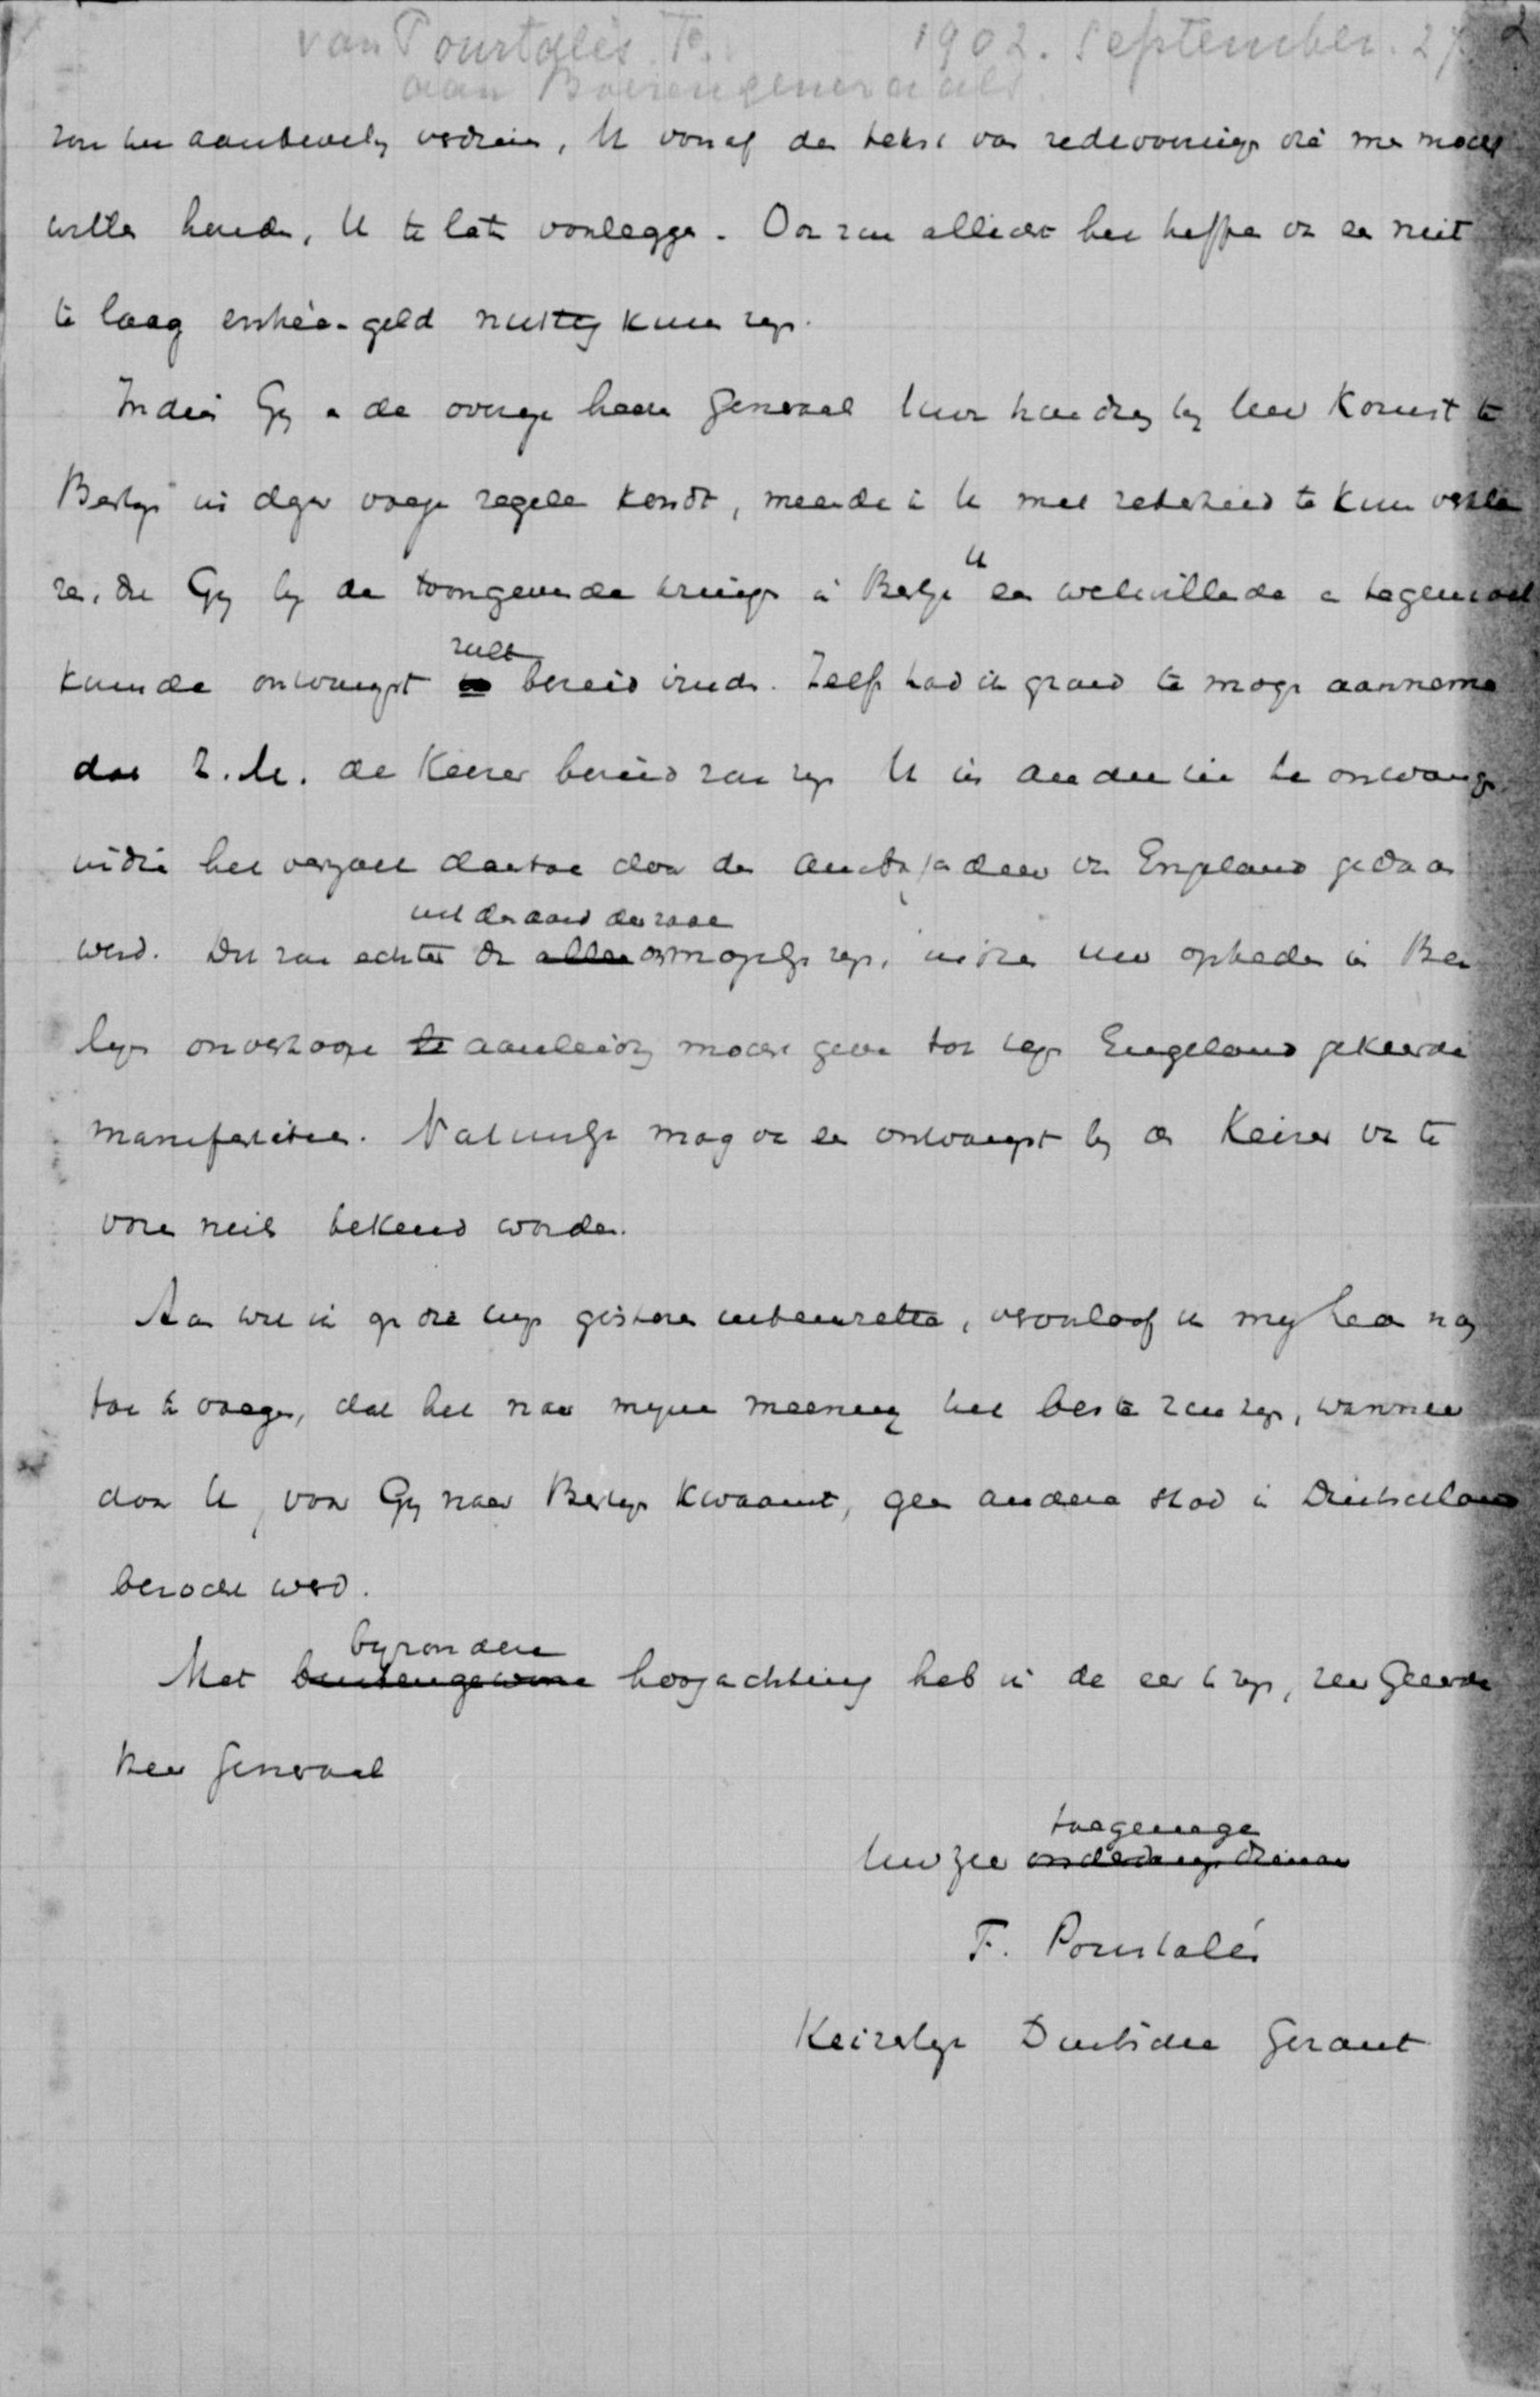 van Pourtalès. F. 1902. September. 27 2
aan Boerengeneraals.
zou het aanbeveling verdienen, U vooraf den tekst van redevoeringen die men mocht
willen houden, U te laten voorleggen. Ook zou allicht het heffen van een niet
te laag entrée-geld nuttig kunnen zijn.
Indien Gij en de overige heeren Generaals Uwe houding bij Uw komst te
Berlijn in dezer voege regelen kondt, meende ik U met zekerheid te kunnen verkla
ren, dat Gij bij de toongevende kringen in Berlijn U een welwillende en tegemoet
komende ontvangst zult bereid vinden. Zelfs had ik grond te mogen aannemen
dat Z. M. de Keizer bereid zou zijn U in audientie te ontvangen
indien het verzoek daartoe door den Ambassadeur van Engeland gedaan
werd. Dit zou echter uit den aard der zaak dan alleen onmogelijk zijn, indien uw optreden in Ber
lijn onverhoopt te aanleiding mocht geven tot tegen Engeland gekeerde
manifestaties. Natuurlijk mag van een ontvangst bij den Keizer van te
voren niets bekend worden.
Aan wat ik op dit tijd gisteren uiteenzette, veroorloof ik mij hier nog
toe te voegen, dat het naar mijne meening het beste zou zijn, wanneer
door U, voor Gij naar Berlijn kwaamt, geen andere stad in Duitschland
bezocht werd.
Met buitengewone bijzondere hoogachting heb ik de eer te zijn, zeer Geëerde
heer Generaal
Uw zeer onderdanige dienaar toegenegen
F. Pourtalès
Keizerlijk Duitsche Gezant